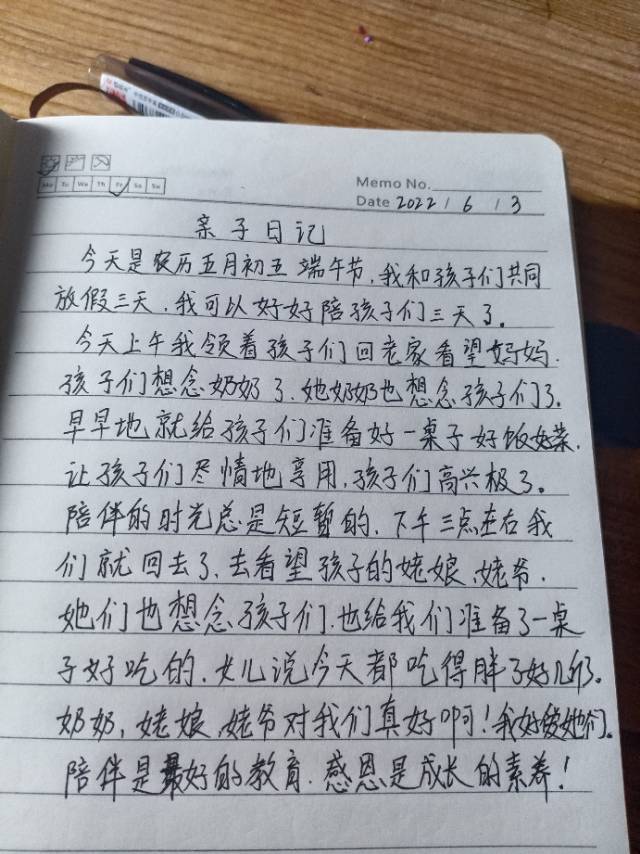 Mo Tu We Th Fr Sa Su
Memo No.
Date 2022 / 6 / 3
亲子日记
今天是农历五月初五端午节,我和孩子们共同
放假三天,我可以好好陪孩子们三天了。
今天上午我领着孩子们回老家看望妈妈.
孩子们想念奶奶了.她奶奶也想念孩子们了.
早早地就给孩子们准备好一桌子好饭好菜.
让孩子们尽情地享用,孩子们高兴极了。
陪伴的时光总是短暂的,下午三点左右我
们就回去了,去看望孩子的姥娘、姥爷.
她们也想念孩子们.也给我们准备了一桌
子好吃的.女儿说今天都吃得胖了好几斤。
奶奶,姥娘、姥爷对我们真好啊!我好爱她们。
陪伴是最好的教育.感恩是成长的素养!